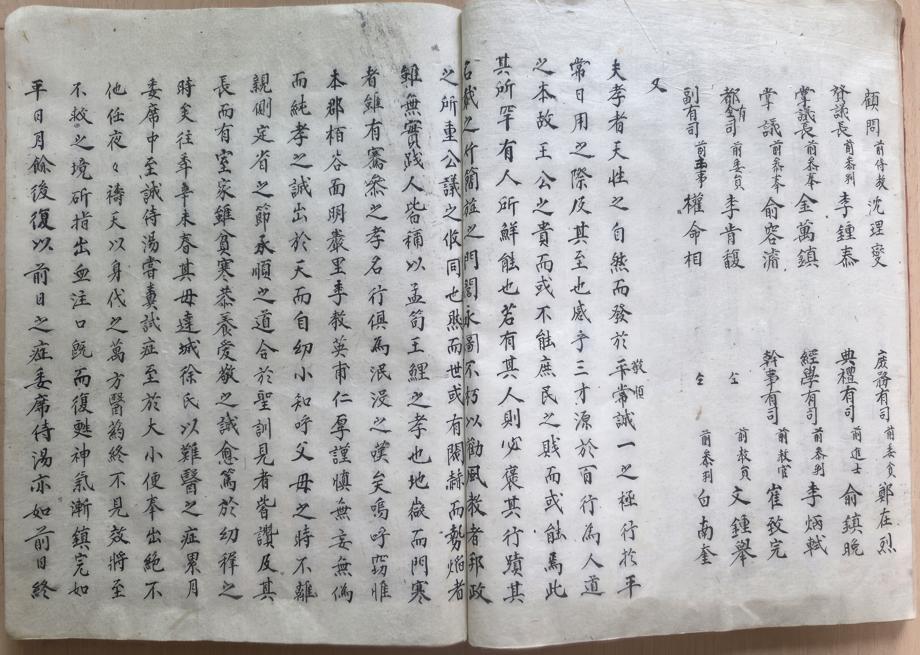 顧問 前侍教 沈理燮 庶務有司 前委員 鄭在烈
贊議長 前叅判 李鍾泰 典禮有司 前進士 俞鎮晚
掌議長 前叅奉 金萬鎮 經學有司 前叅判 李炳軾
掌議 前叅奉 俞容濬 幹事有司 前教官 崔致完
都有司 前委員 李肯馥 仝 前教員 文鍾舉
副有司 前主事 權命相 仝 前叅判 白南奎
又
夫孝者天性之自然而發於平常誠一之極行於平
敬順
常日用之際及其至也感乎三才源於百行為人道
之本故王公之貴而或不能庶民之賎而或能焉此
其所罕有人所鮮能也若有其人則必褒其行蹟其
名載之竹簡旌之門閭永圖不朽以勸風教者邦政
之所重公議之攸同也然而世或有閥赫而勢焰者
雖無實踐人皆稱以孟筍王鯉之孝也地微而門寒
者雖有審叅之孝名行俱為泯沒之嘆矣嗚呼竊惟
本郡栢谷面明巖里李教英甫仁厚謹慎無妄無僞
而純孝之誠出於天而自幼小知呼父母之時不離
親側定省之節承順之道合於聖訓見者皆讚及其
長而有室家雖貧寒恭養愛敬之誠愈篤於幼穉之
時矣往年辛未春其母達城徐氏以難醫之症累月
委席中至誠侍湯嘗糞試症至於大小便奉出絶不
他任夜々禱天以身代之萬方醫葯終不見效將至
不救之境斫指出血注口旣而復甦神氣漸鎮完如
平日月餘後復以前日之症委席侍湯亦如前日終